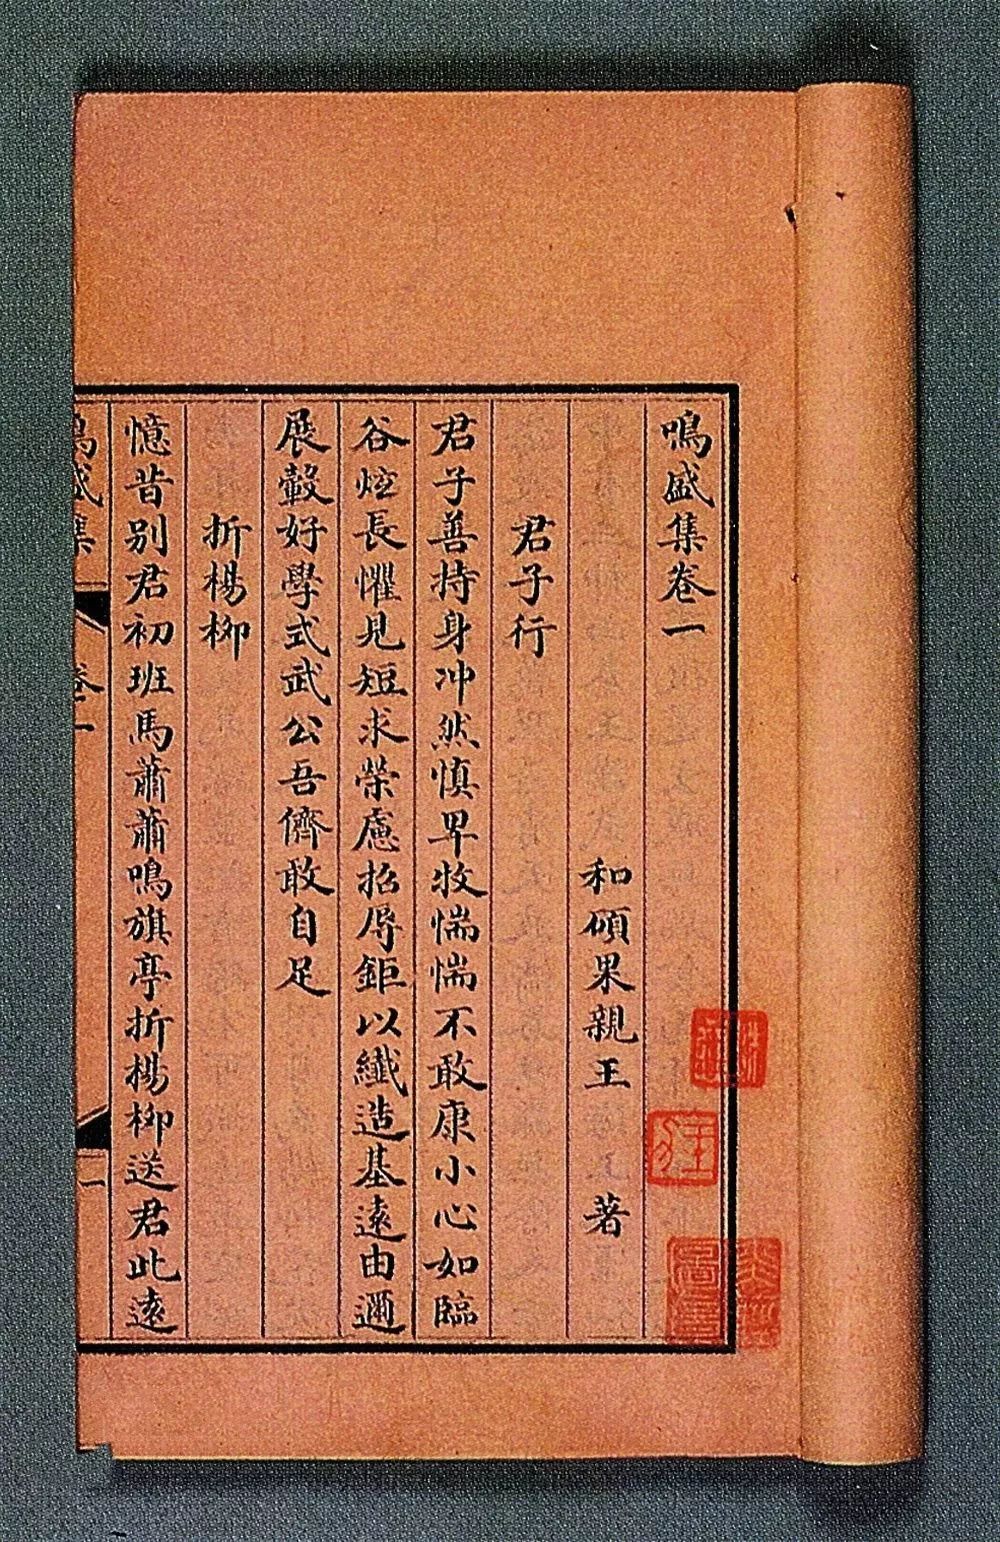 鳴盛集卷一
和碩果親王 著
君子行
君子善持身冲然慎卑牧惴惴不敢康小心如臨
谷炫長懼見短求榮慮招辱鉅以纖造基遠由邇
展轂好學式武公吾儕敢自足
折楊柳
憶昔别君初班馬蕭蕭鳴旗亭折楊柳送君此遠
鳴盛集 卷一